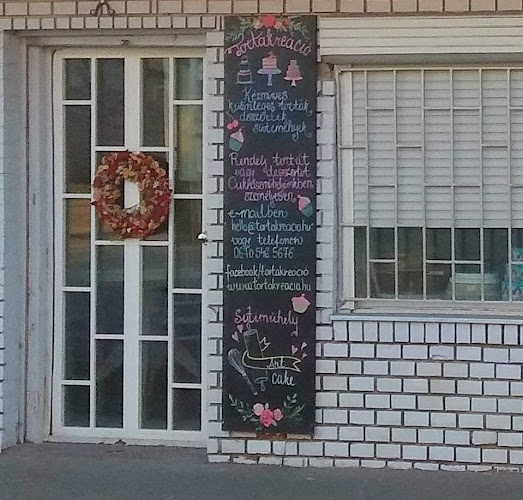 Tortakreáció
Kézműves
különleges torták,
desszertek
sütemények
Rendelj tortát
vagy desszertet
Cukrászműhelyünkben
személyesen
e-mailben
hello@tortakreacio.hu
vagy telefonon
0670 546 5676
facebook/tortakreáció
www.tortakreacio.hu
Sütiműhely
Art
Cake